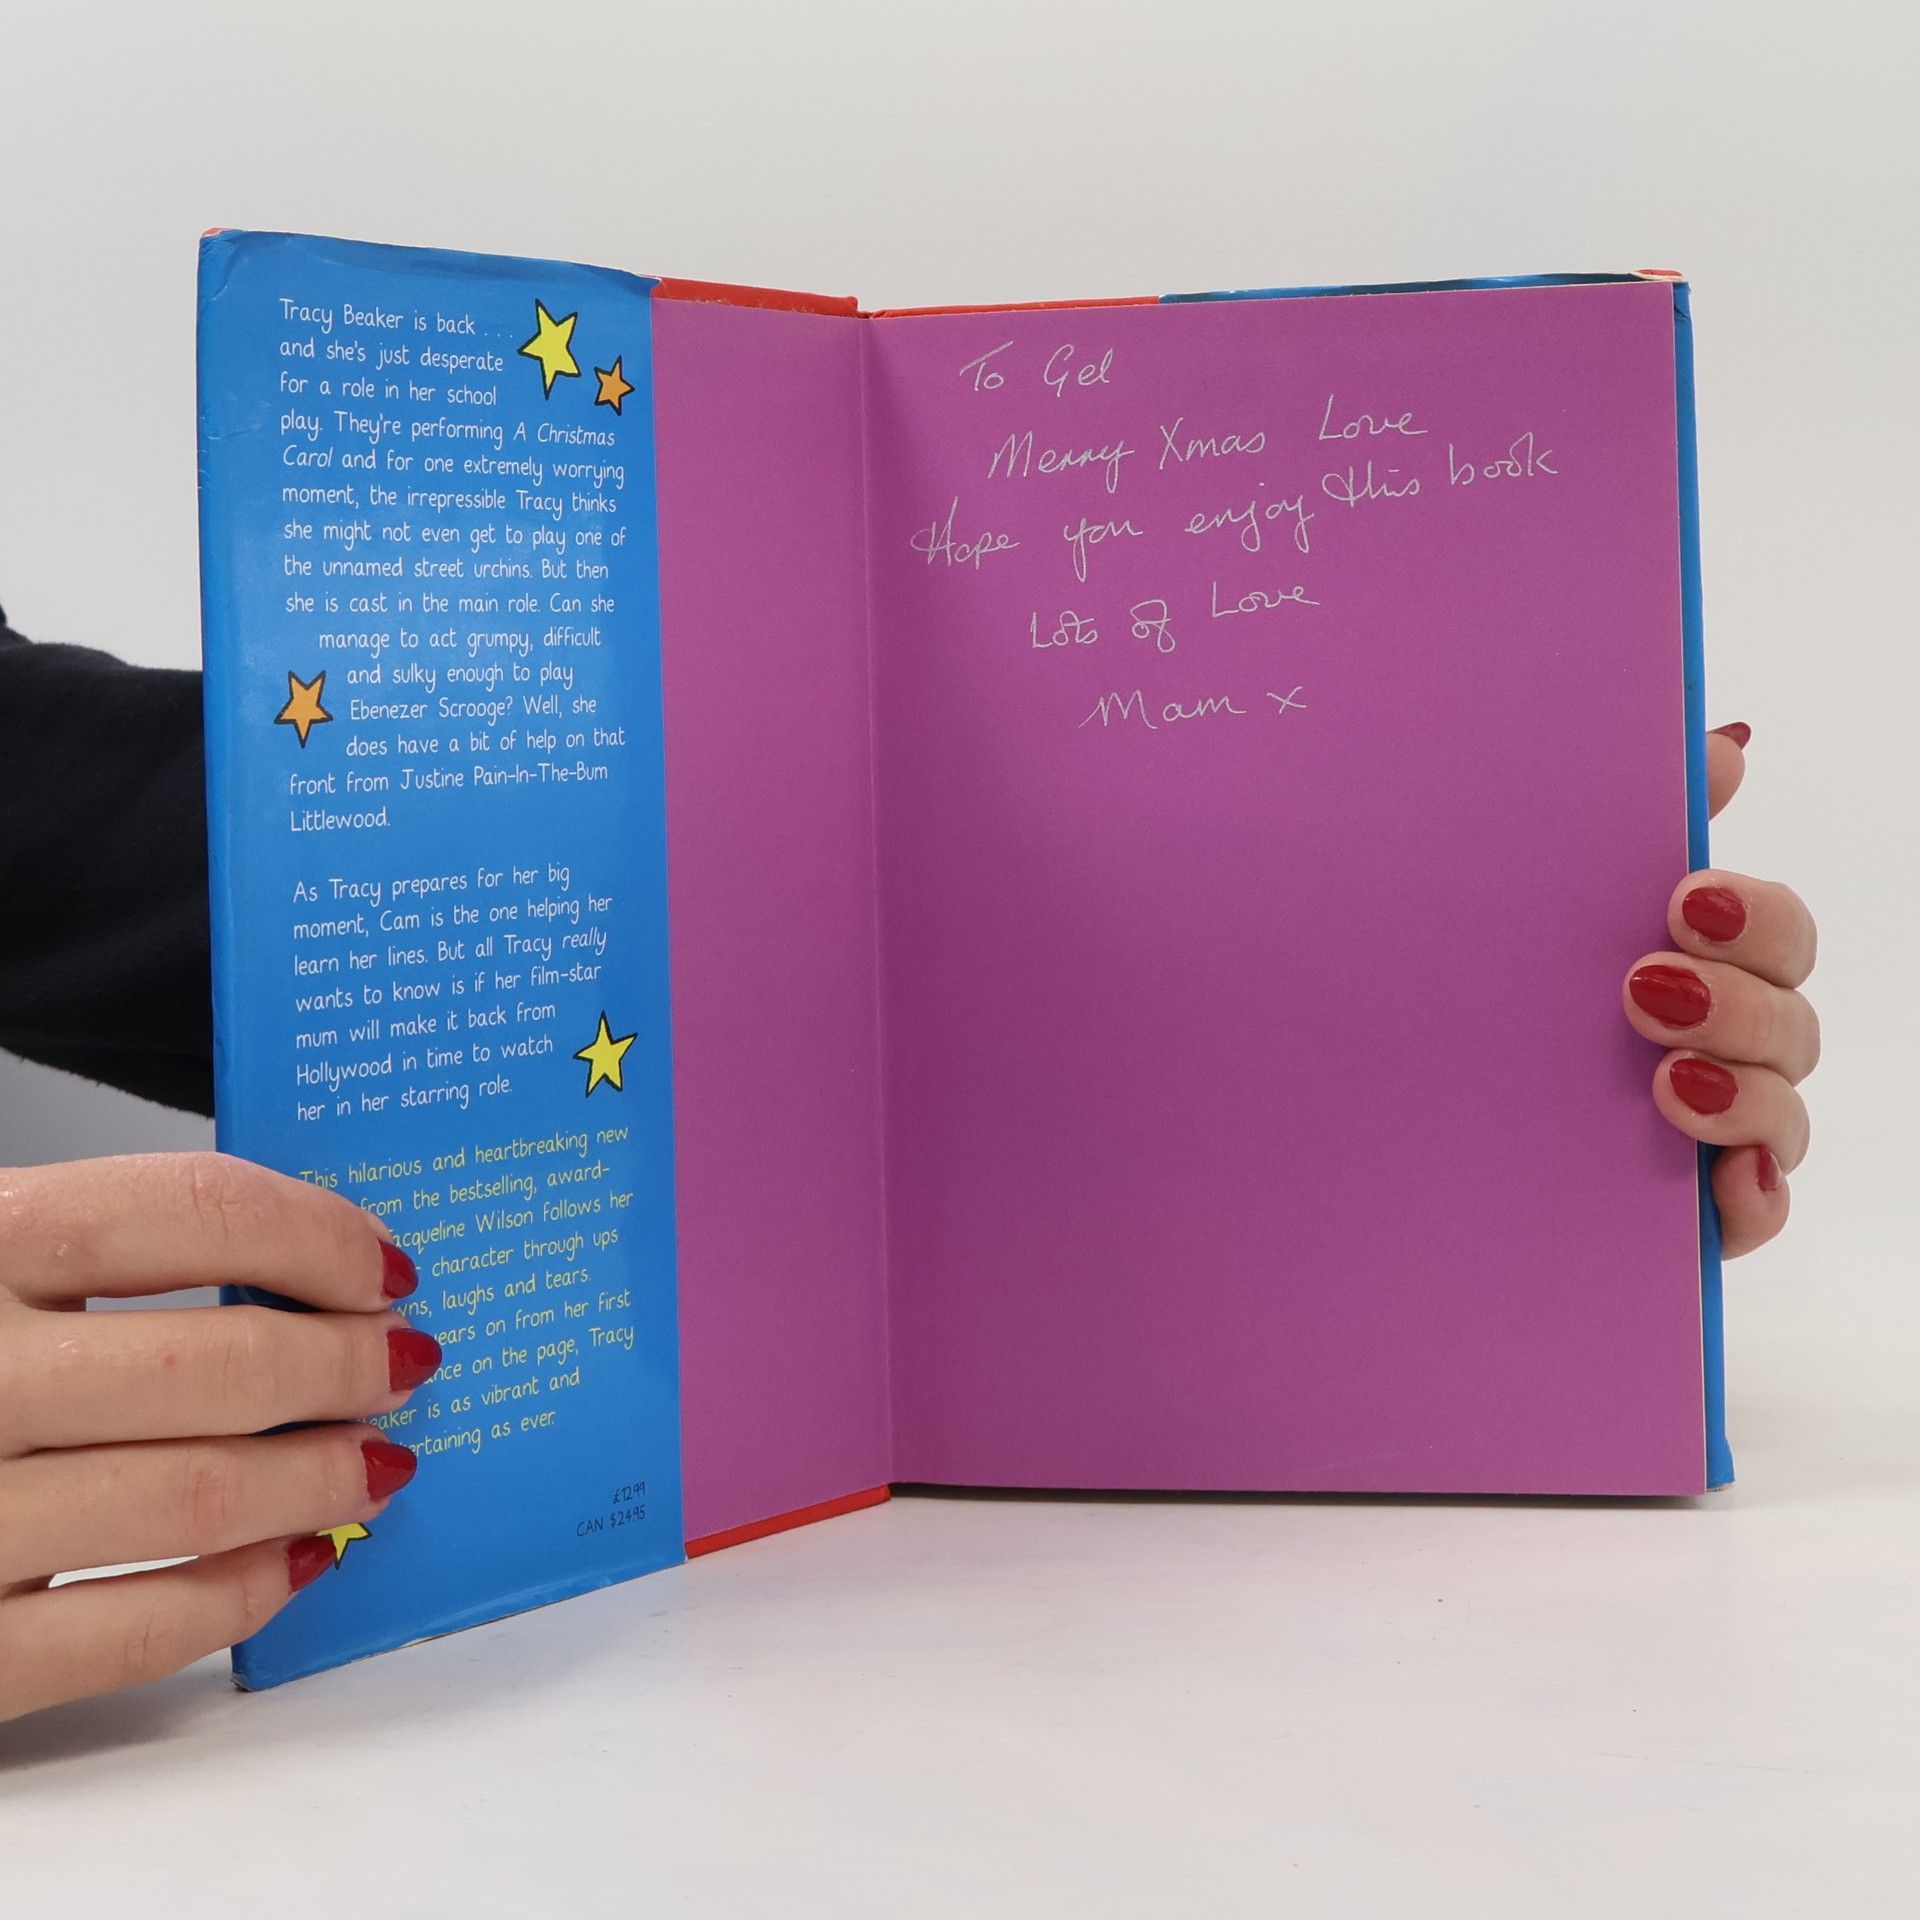 Tracy Beaker is back . . .
and she's just desperate
for a role in her school
play. They're performing A Christmas
Carol and for one extremely worrying
moment, the irrepressible Tracy thinks
she might not even get to play one of
the unnamed street urchins. But then
she is cast in the main role. Can she
manage to act grumpy, difficult
and sulky enough to play
Ebenezer Scrooge? Well, she
does have a bit of help on that
front from Justine Pain-In-The-Bum
Littlewood.
As Tracy prepares for her big
moment, Cam is the one helping her
learn her lines. But all Tracy really
wants to know is if her film-star
mum will make it back from
Hollywood in time to watch
her in her starring role.
This hilarious and heartbreaking new
from the bestselling, award-
Jacqueline Wilson follows her
character through ups
laughs and tears.
years on from her first
on the page, Tracy
Beaker is as vibrant and
as ever.
£12.99
CAN $24.95
To Gel
Merry Xmas Love
Hope you enjoy this book
Lots of Love
Mam x